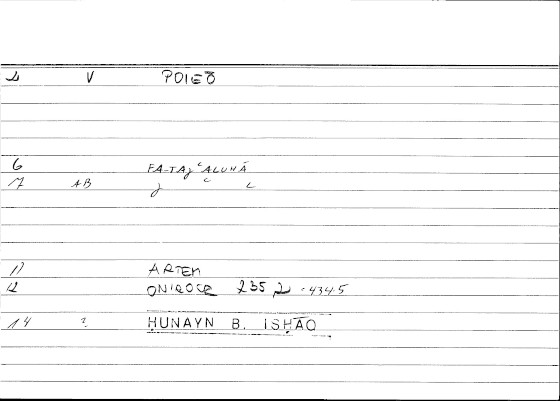 2 V POIEŌ
6 FA-TAJʿALUHĀ
17 AB J ʿ L
11 ARTEM
12 ONIROCR 235,2 - 4345
14 ? ḤUNAYN B. ISḤĀQ